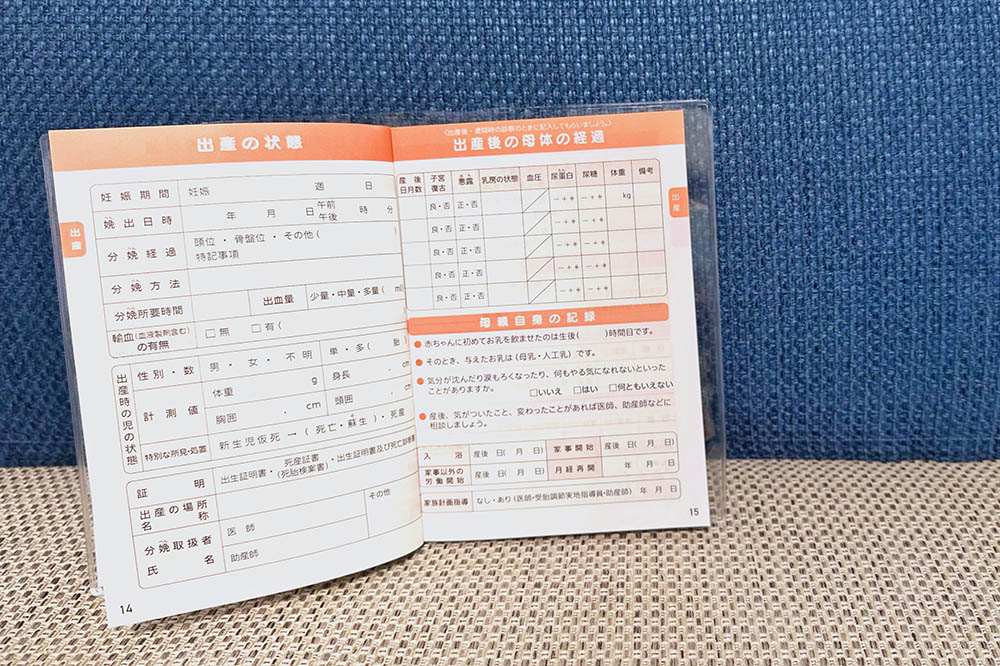 出産の状態
出産
妊娠期間 妊娠 週 日
娩出日時 年 月 日 午前 午後 時 分
分娩経過 頭位・骨盤位・その他( )
特記事項
分娩方法
分娩所要時間 出血量 少量・中量・多量( ml)
輸血(血液製剤含む)の有無 □無 □有(
出産時の児の状態
性別・数 男・女・不明 単・多( 胎)
計測値 体重 g 身長 . cm
胸囲 . cm 頭囲 . cm
特別な所見・処置 新生児仮死 → (死亡・蘇生)・死産
証明 出生証明書・死産証書(死胎検案書)・出生証明書及び死亡診断書
出産の場所
名称
分娩取扱者
氏名
医師
助産師
その他
14
〈出産後・退院時の診察のときに記入してもらいましょう。〉
出産後の母体の経過
出産
産後日月数 子宮復古 悪露 乳房の状態 血圧 尿蛋白 尿糖 体重 備考
良・否 正・否 − + + − + + kg
良・否 正・否 − + + − + +
良・否 正・否 − + + − + +
良・否 正・否 − + + − + +
良・否 正・否 − + + − + +
母親自身の記録
● 赤ちゃんに初めてお乳を飲ませたのは生後( )時間目です。
● そのとき、与えたお乳は(母乳・人工乳)です。
● 気分が沈んだり涙もろくなったり、何もやる気になれないといった
ことがありますか。 □いいえ □はい □何ともいえない
● 産後、気がついたこと、変わったことがあれば医師、助産師などに
相談しましょう。
入浴 産後 日( 月 日) 家事開始 産後 日( 月 日)
家事以外の労働開始 産後 日( 月 日) 月経再開 年 月 日
家族計画指導 なし・あり(医師・受胎調節実地指導員・助産師) 年 月 日
15